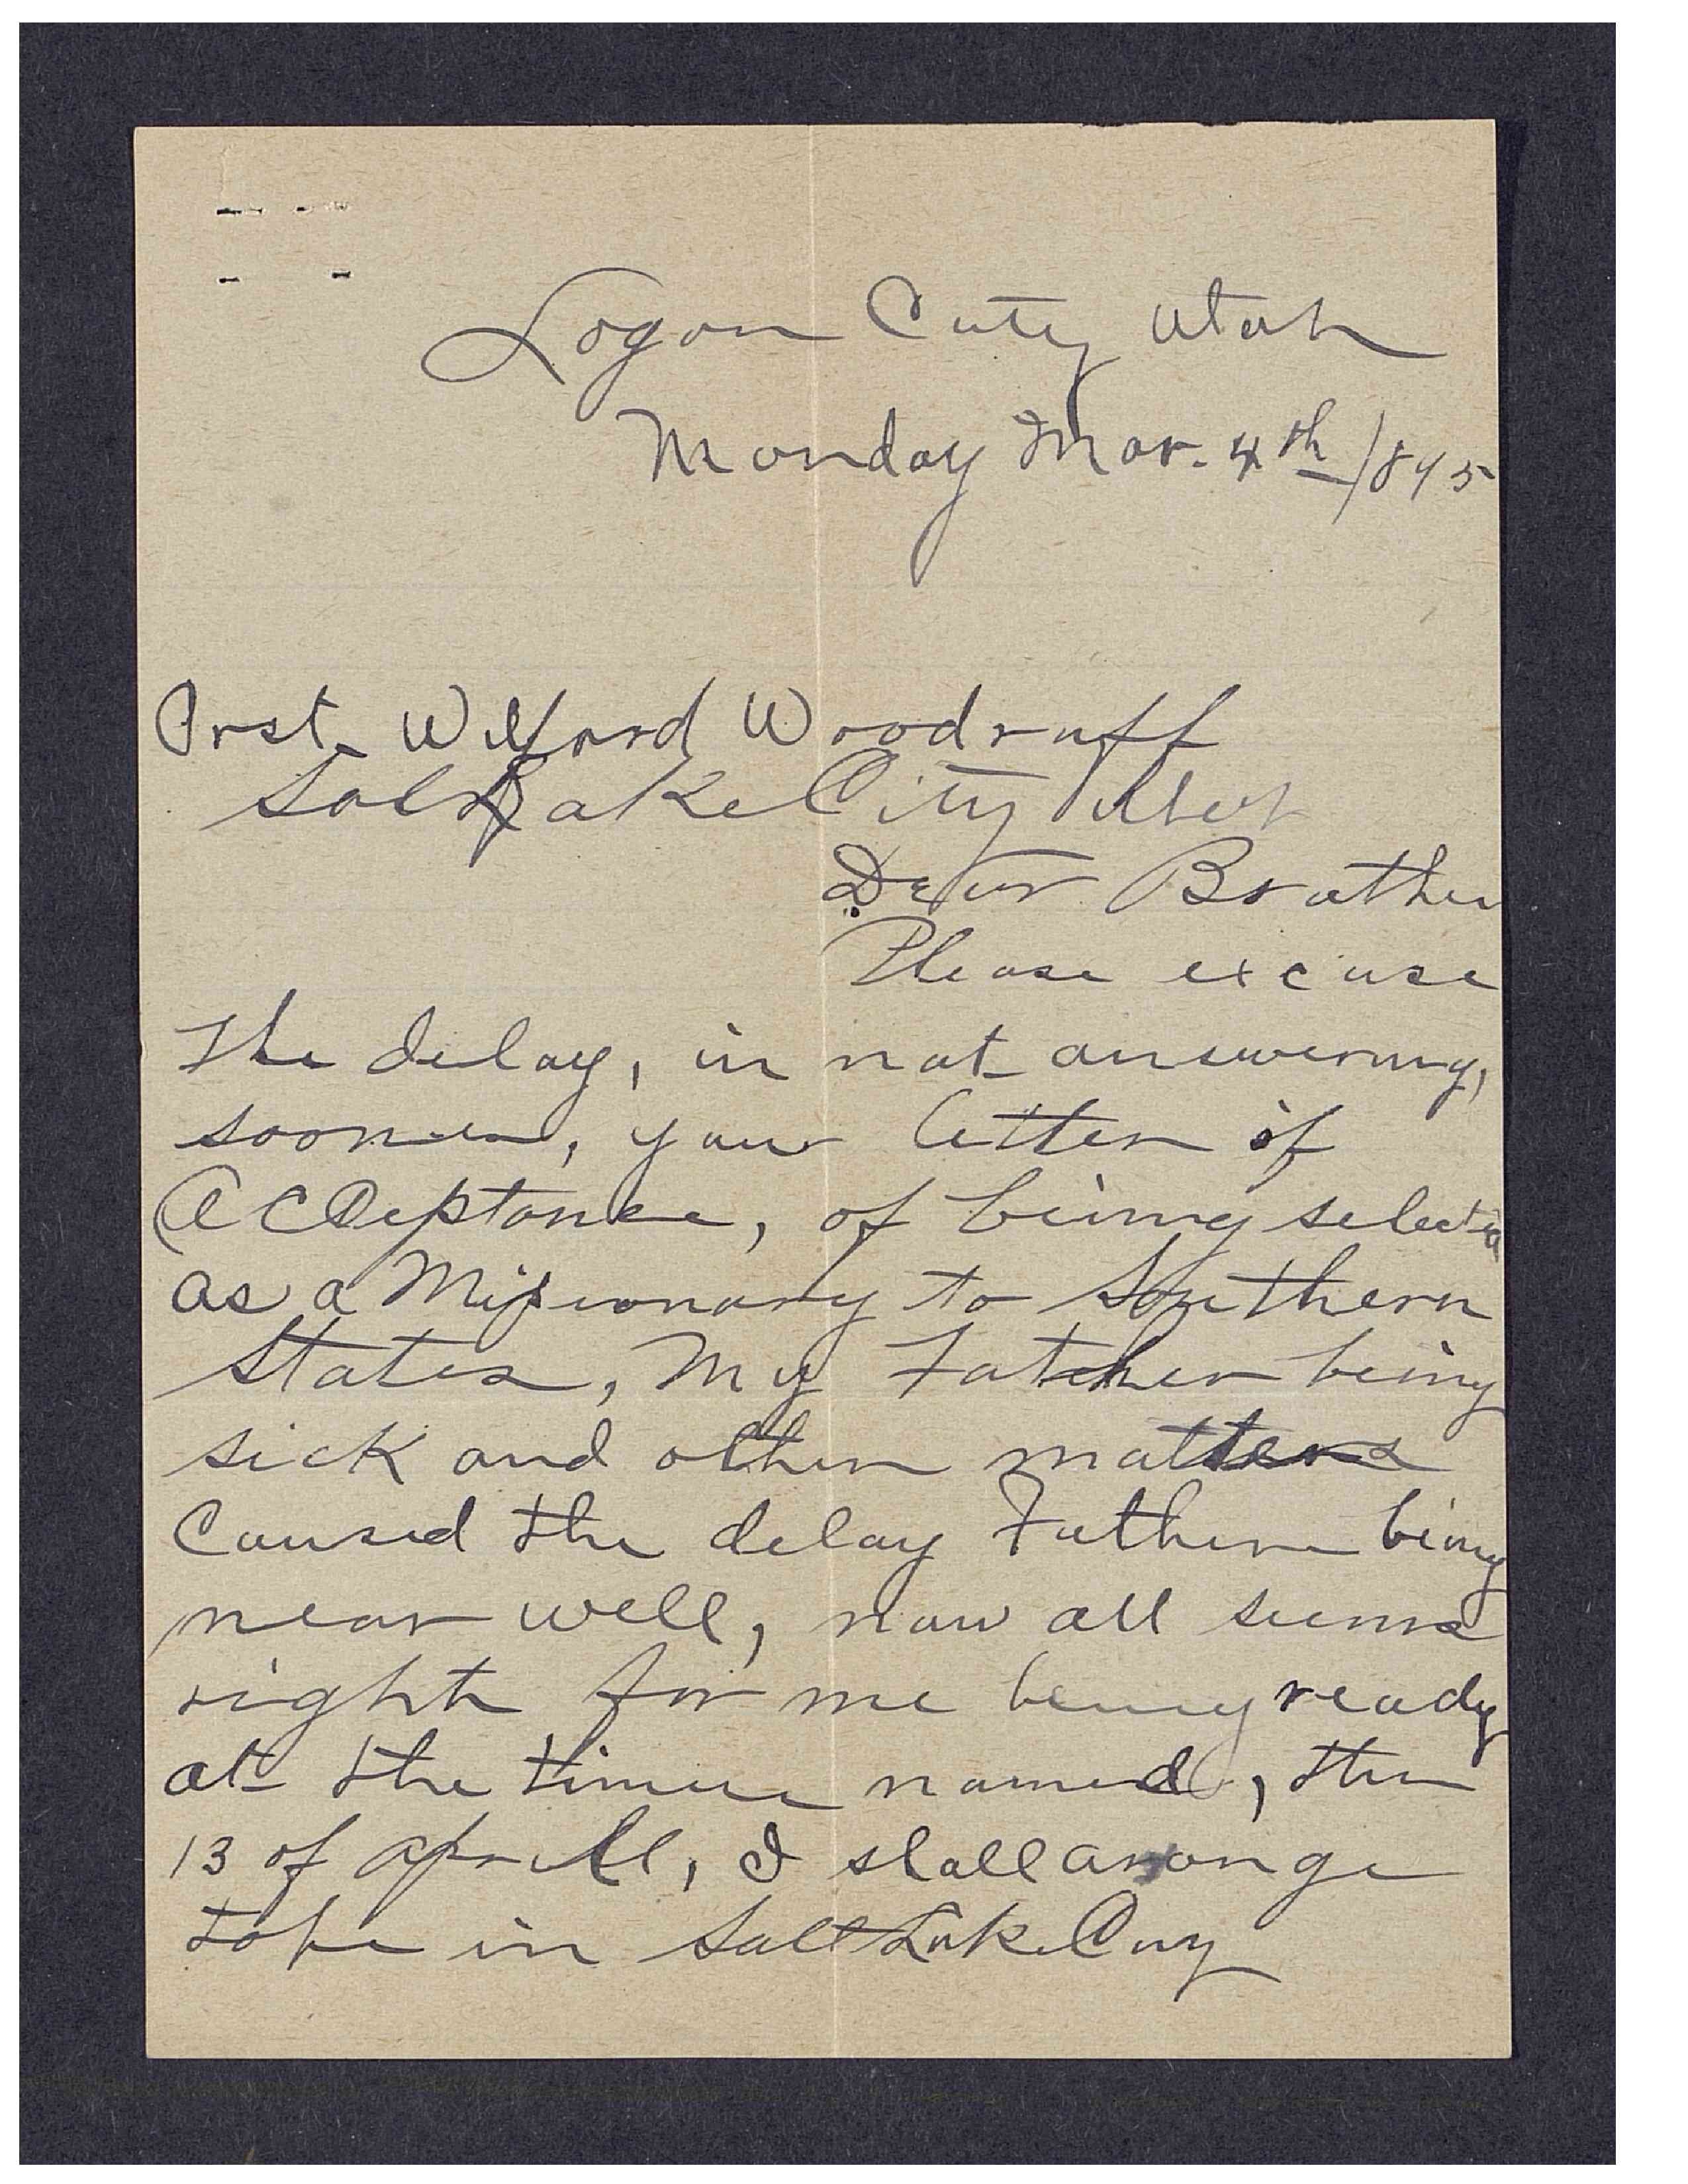 Logan City Utah
Monday Mar. 4th /895
Prst. Wilford Woodruff
Salt Lake City Utah
Dear Brother
Please excuse
the delay, in not answering,
sooner, your letter of
Acceptance, of being selected
as a Missionary to Southern
States, My Father being
sick and other matters
Caused the delay Father being
near well, now all seems
right for me being ready
at the time named, the
13 of Aprill, I shall arrange
to be in Salt Lake City